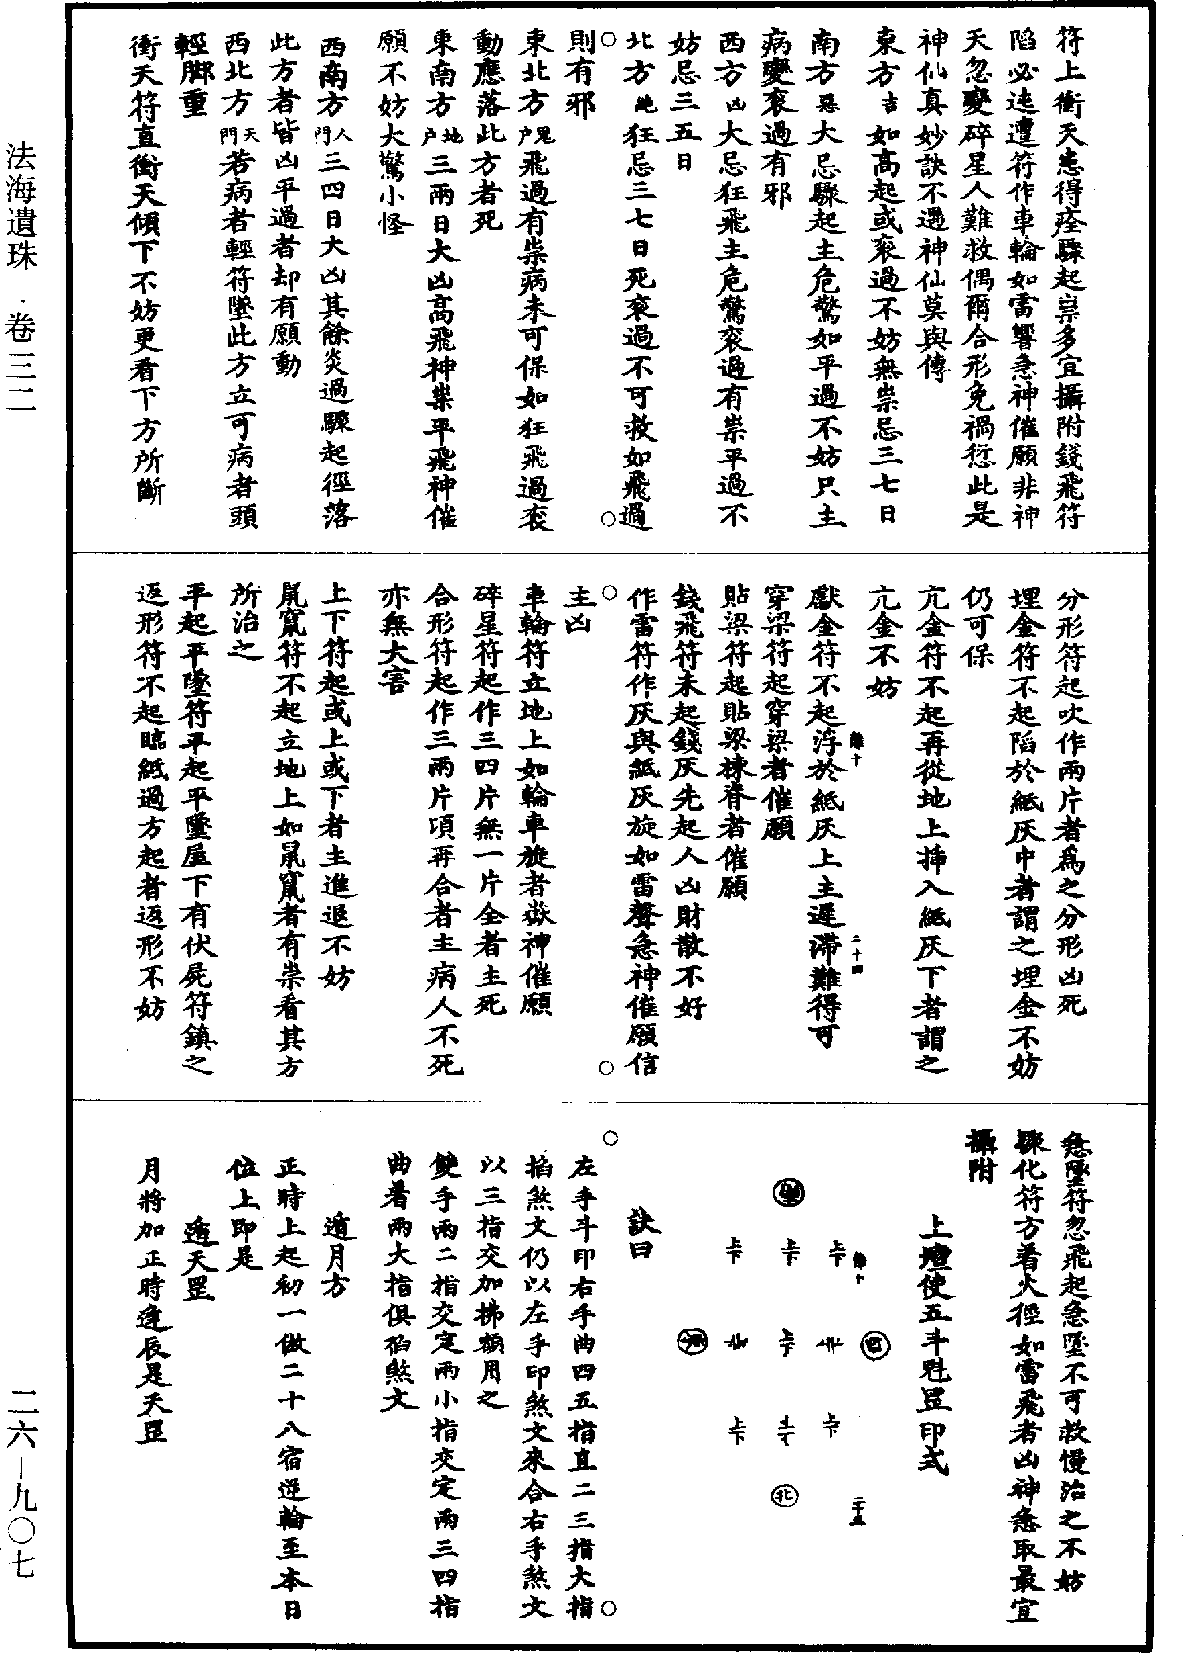 法海遺珠·卷三二
二六—九〇七
符上衝天患得痊驟起祟多宜攝附錢飛符
陷必速遭符作車輪如雷響急神催願非神
天忽變碎星人難救偶爾合形免禍愆此是
神仙真妙訣不遇神仙莫與傳
東方吉如高起或衮過不妨無祟忌三七日
南方惡大忌驟起主危驚如平過不妨只主
病變衮過有邪
西方凶大忌狂飛主危驚衮過有祟平過不
妨忌三五日
北方絕狂忌三七日死衮過不可救如飛過
則有邪
東北方鬼戶飛過有祟病未可保如狂飛過衮
動應落此方者死
東南方地戶三兩日大凶高飛神祟平飛神催
願不妨大驚小怪
西南方人門三四日大凶其餘炎過驟起徑落
此方者皆凶平過者却有願動
西北方天門若病者輕符墜此方立可病者頭
輕脚重
衝天符直衝天傾下不妨更看下方所斷
分形符起吹作兩片者為之分形凶死
埋金符不起陷於紙灰中者謂之埋金不妨
仍可保
亢金符不起再從地上揷入紙灰下者謂之
亢金不妨
獻金符不起浮於紙灰上主遲滯難得可
穿梁符起穿梁者催願
貼梁符起貼梁棟脊者催願
錢飛符未起錢灰先起人凶財散不好
作雷符作灰與紙灰旋如雷聲急神催願信
主凶
車輪符立地上如輪車旋者嶽神催願
碎星符起作三四片無一片全者主死
合形符起作三兩片項再合者主病人不死
亦無大害
上下符起或上或下者主進退不妨
鼠竄符不起立地上如鼠竄者有祟看其方
所治之
平起平墜符平起平墜屋下有伏屍符鎮之
返形符不起臨紙過方起者返形不妨
二十四
急墜符忽飛起急墜不可救慢治之不妨
驟化符方著火徑如雷飛者凶神急取最宜
攝附
上壇使五斗魁罡印式
二十五
北
訣曰
左手斗印右手曲四五指直二三指大指
掐煞文仍以左手印煞文來合右手煞文
以三指交加拂額用之
雙手兩二指交定兩小指交定兩三四指
曲著兩大指俱掐煞文
遁月方
正時上起初一做二十八宿逆輪至本日
位上即是
遁天罡
月將加正時逢辰是天罡